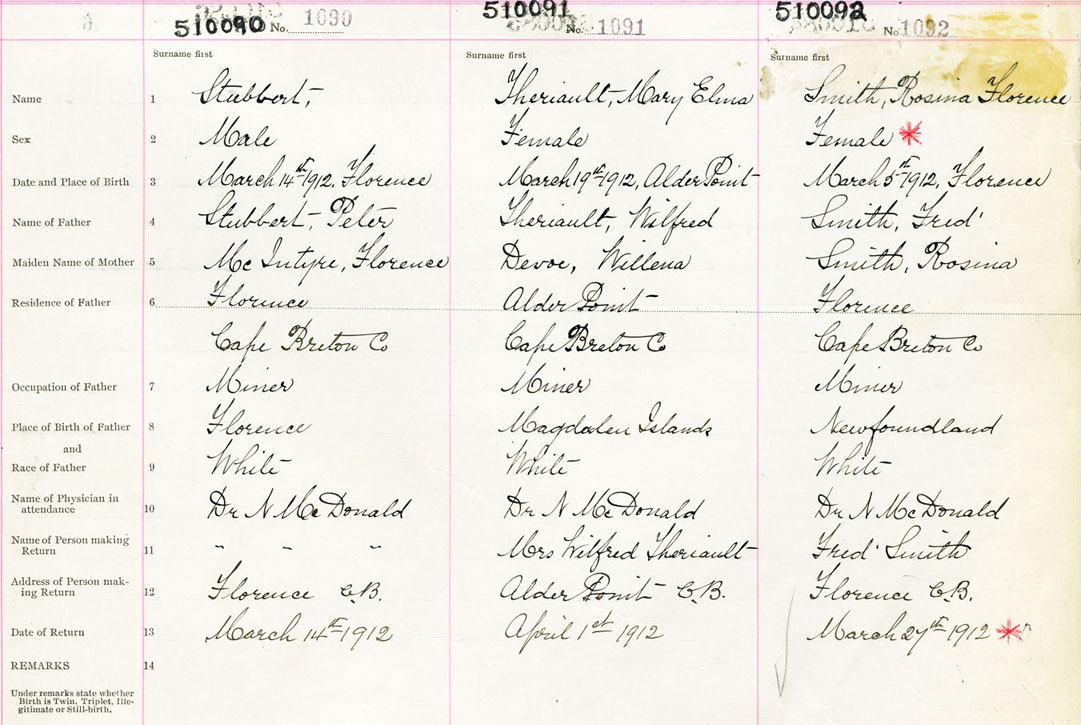 510090 No. 1090 510091 No. 1091 510092 No. 1092
Surname first Surname first Surname first
Name 1 Stubbert, Theriault, Mary Elma Smith, Rosina Florence
Sex 2 Male Female Female *
Date and Place of Birth 3 March 14th 1912, Florence March 19th 1912, Alder Point March 5th 1912, Florence
Name of Father 4 Stubbert, Peter Theriault, Wilfred Smith, Fred'
Maiden Name of Mother 5 Mc Intyre, Florence Devoe, Willena Smith, Rosina
Residence of Father 6 Florence Alder Point Florence
Cape Breton Co Cape Breton Co Cape Breton Co
Occupation of Father 7 Miner Miner Miner
Place of Birth of Father 8 Florence Magdalen Islands Newfoundland
and
Race of Father 9 White White White
Name of Physician in
attendance 10 Dr N Mc Donald Dr N Mc Donald Dr N Mc Donald
Name of Person making
Return 11 " " " Mrs Wilfred Theriault Fred' Smith
Address of Person mak-
ing Return 12 Florence C.B. Alder Point C.B. Florence C.B.
Date of Return 13 March 14th 1912 April 1st 1912 March 27th 1912 *
REMARKS 14
Under remarks state whether
Birth is Twin, Triplet, Ille-
gitimate or Still-birth.